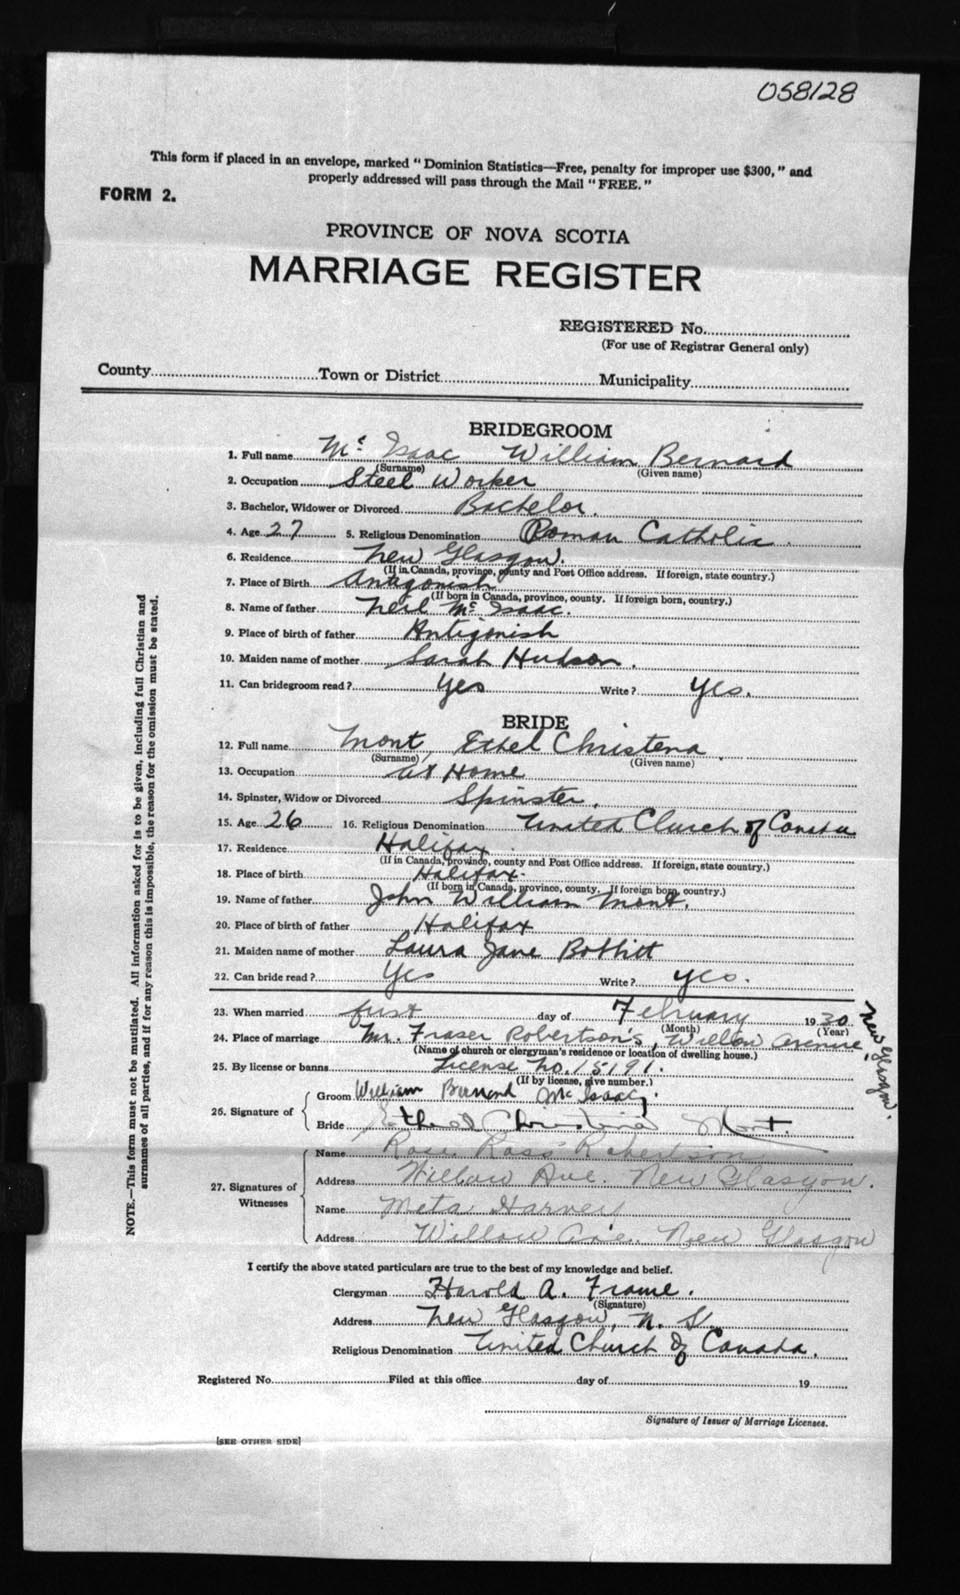 058128
This form if placed in an envelope, marked "Dominion Statistics—Free, penalty for improper use $300," and
properly addressed will pass through the Mail "FREE."
FORM 2.
PROVINCE OF NOVA SCOTIA
MARRIAGE REGISTER
REGISTERED No.
(For use of Registrar General only)
County Town or District Municipality
BRIDEGROOM
1. Full name Mc Isaac William Bernard
(Surname) (Given name)
2. Occupation Steel Worker
3. Bachelor, Widower or Divorced Bachelor.
4. Age 27 5. Religious Denomination Roman Catholic.
6. Residence New Glasgow.
(If in Canada, province, county and Post Office address. If foreign, state country.)
7. Place of Birth Antigonish
(If born in Canada, province, county. If foreign born, country.)
8. Name of father Neil Mc Isaac.
9. Place of birth of father Antigonish
10. Maiden name of mother Sarah Hudson.
11. Can bridegroom read? Yes Write? Yes.
BRIDE
12. Full name Mont, Ethel Christena
(Surname) (Given name)
13. Occupation at Home
14. Spinster, Widow or Divorced Spinster.
15. Age 26 16. Religious Denomination United Church of Canada
17. Residence Halifax
(If in Canada, province, county and Post Office address. If foreign, state country.)
18. Place of birth Halifax.
(If born in Canada, province, county. If foreign born, country.)
19. Name of father John William Mont.
20. Place of birth of father Halifax
21. Maiden name of mother Laura Jane Bobbitt
22. Can bride read? Yes Write? yes.
23. When married first day of February 1930
(Month) (Year)
24. Place of marriage Mr. Fraser Robertson's, Willow Avenue, New Glasgow.
(Name of church or clergyman's residence or location of dwelling house.)
25. By license or banns License No. 15191.
(If by license, give number.)
26. Signature of
Groom William Bernard McIsaac
Bride Ethel Christina Mont.
27. Signatures of Witnesses
Name Rose Ross Robertson
Address Willow Ave. New Glasgow.
Name Meta Harvey
Address Willow Ave. New Glasgow
I certify the above stated particulars are true to the best of my knowledge and belief.
Clergyman Harold A. Frame.
(Signature)
Address New Glasgow, N. S.
Religious Denomination United Church of Canada.
Registered No. Filed at this office day of 19
Signature of Issuer of Marriage Licenses.
[SEE OTHER SIDE]
NOTE.—This form must not be mutilated. All information asked for is to be given, including full Christian and
surnames of all parties, and if for any reason this is impossible, the reason for the omission must be stated.